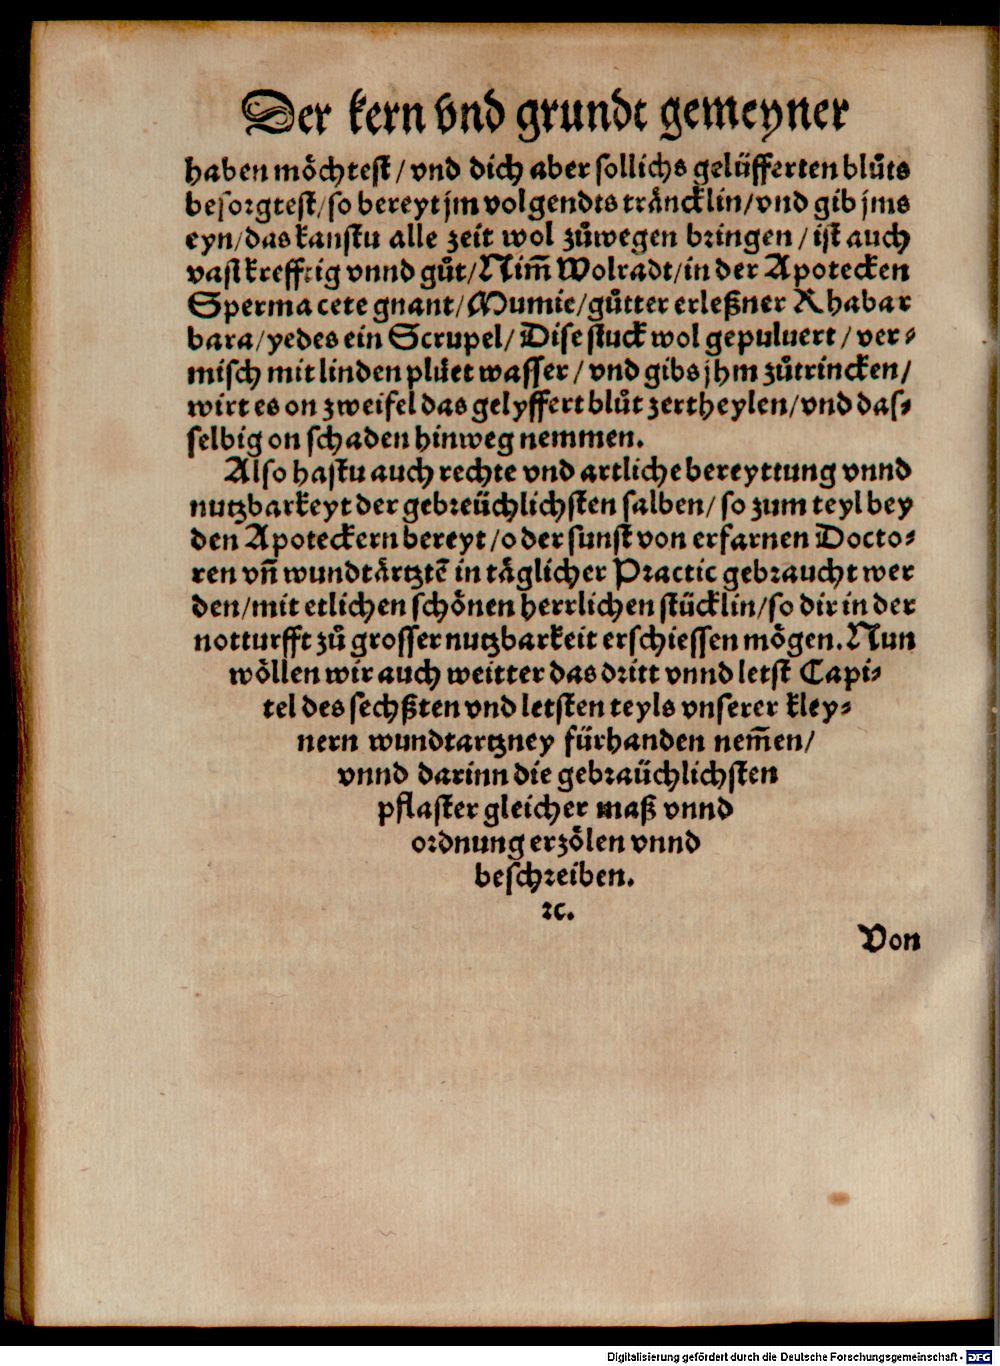 Der kern vnd grundt gemeyner
haben moͤchtest / vnd dich aber sollichs gelüfferten bluͦts
besorgtest / so bereyt jm volgendts traͤncklin / vnd gib jms
eyn / das kanstu alle zeit wol zuͦwegen bringen / ist auch
vast kreffrig vnnd guͦt / Nim̃ Wolradt / in der Apotecken
Sperma cete gnant / Mumie / guͦtter erleßner Rhabar
bara / yedes ein Scrupel / Dise stuck wol gepuluert / ver⸗
misch mit linden pluͤet wasser / vnd gibs jhm zuͦtrincken /
wirt es on zweifel das gelyffert bluͦt zertheylen / vnd das⸗
selbig on schaden hinweg nemmen.
Also hastu auch rechte vnd artliche bereyttung vnnd
nutzbarkeyt der gebreüchlichsten salben / so zum teyl bey
den Apoteckern bereyt / oder sunst von erfarnen Docto⸗
ren vñ wundtaͤrtztẽ in taͤglicher Practic gebraucht wer
den / mit etlichen schoͤnen herrlichen stücklin / so dir in der
notturfft zuͦ grosser nutzbarkeit erschiessen moͤgen. Nun
woͤllen wir auch weitter das dritt vnnd letst Capi⸗
tel des sechßten vnd letsten teyls vnserer kley⸗
nern wundtartzney fürhanden nem̃en /
vnnd darinn die gebraüchlichsten
pflaster gleicher maß vnnd
ordnung erzoͤlen vnnd
beschreiben.
ꝛc.
Von
Digitalisierung gefördert durch die Deutsche Forschungsgemeinschaft - DFG